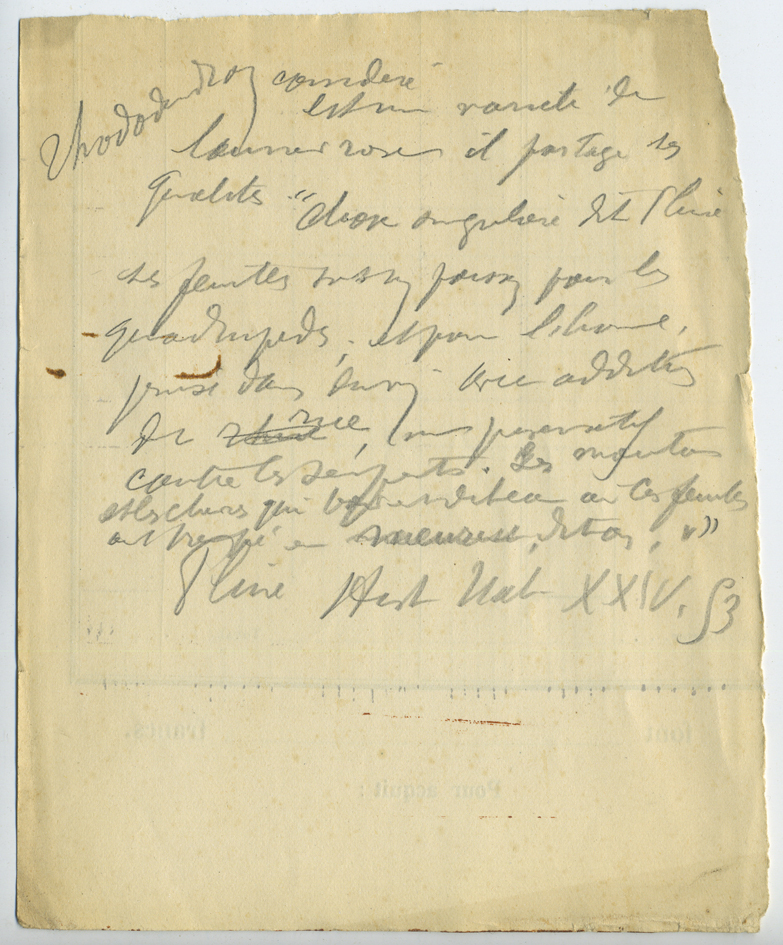 rhododendron considéré
est une variété de
laurier rose il partage ses
qualités "chose singulière dit Pline
ses feuilles sont poison pour les
quadrupèdes, et pour l'homme,
prise dans du vin avec addition
de rue, un préservatif
contre les serpents. Les moutons
et les chèvres qui boivent de l'eau où ces feuilles
ont trempé en meurent, dit on, "»
Pline Hist Nat XXIV. 53
francs.
Pour acquit :